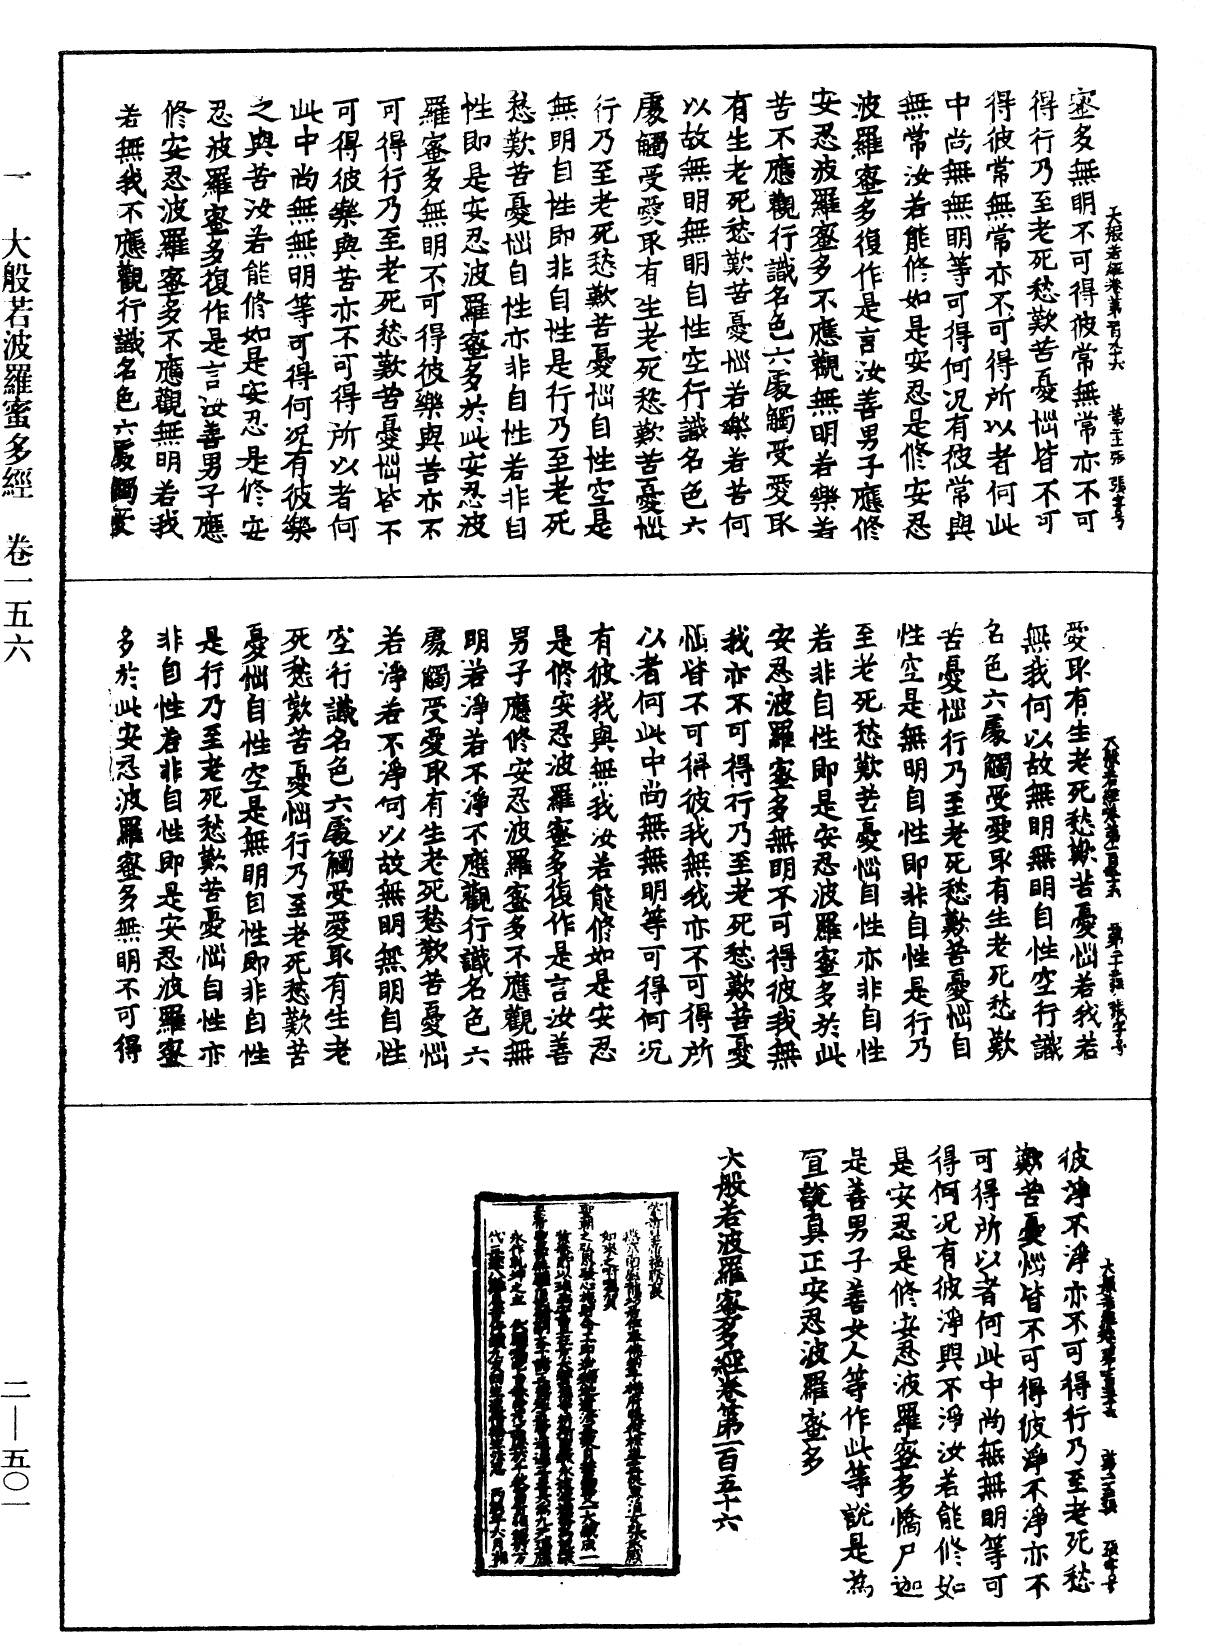 大般若經卷第一百五十六　第二十三張　張字号
蜜多無明不可得彼常無常亦不可
得行乃至老死愁歎苦憂惱皆不可
得彼常無常亦不可得所以者何此
中尚無無明等可得何況有彼常與
無常汝若能修如是安忍是修安忍
波羅蜜多復作是言汝善男子應修
安忍波羅蜜多不應觀無明若樂若
苦不應觀行識名色六處觸受愛取
有生老死愁歎苦憂惱若樂若苦何
以故無明無明自性空行識名色六
處觸受愛取有生老死愁歎苦憂惱
行乃至老死愁歎苦憂惱自性空是
無明自性即非自性是行乃至老死
愁歎苦憂惱自性亦非自性若非自
性即是安忍波羅蜜多於此安忍波
羅蜜多無明不可得彼樂與苦亦不
可得行乃至老死愁歎苦憂惱皆不
可得彼樂與苦亦不可得所以者何
此中尚無無明等可得何況有彼樂
之與苦汝若能修如是安忍是修安
忍波羅蜜多復作是言汝善男子應
修安忍波羅蜜多不應觀無明若我
若無我不應觀行識名色六處觸受
愛取有生老死愁歎苦憂惱若我若
無我何以故無明無明自性空行識
名色六處觸受愛取有生老死愁歎
苦憂惱行乃至老死愁歎苦憂惱自
性空是無明自性即非自性是行乃
至老死愁歎苦憂惱自性亦非自性
若非自性即是安忍波羅蜜多於此
安忍波羅蜜多無明不可得彼我無
我亦不可得行乃至老死愁歎苦憂
惱皆不可得彼我無我亦不可得所
以者何此中尚無無明等可得何況
有彼我與無我汝若能修如是安忍
是修安忍波羅蜜多復作是言汝善
男子應修安忍波羅蜜多不應觀無
明若淨若不淨不應觀行識名色六
處觸受愛取有生老死愁歎苦憂惱
若淨若不淨何以故無明無明自性
空行識名色六處觸受愛取有生老
死愁歎苦憂惱行乃至老死愁歎苦
憂惱自性空是無明自性即非自性
是行乃至老死愁歎苦憂惱自性亦
非自性若非自性即是安忍波羅蜜
多於此安忍波羅蜜多無明不可得
彼淨不淨亦不可得行乃至老死愁
歎苦憂惱皆不可得彼淨不淨亦不
可得所以者何此中尚無無明等可
得何況有彼淨與不淨汝若能修如
是安忍是修安忍波羅蜜多憍尸迦
是善男子善女人等作此等說是為
宣說真正安忍波羅蜜多
大般若波羅蜜多經卷第一百五十六
一　大般若波羅蜜多經　卷一五六
二—五〇一